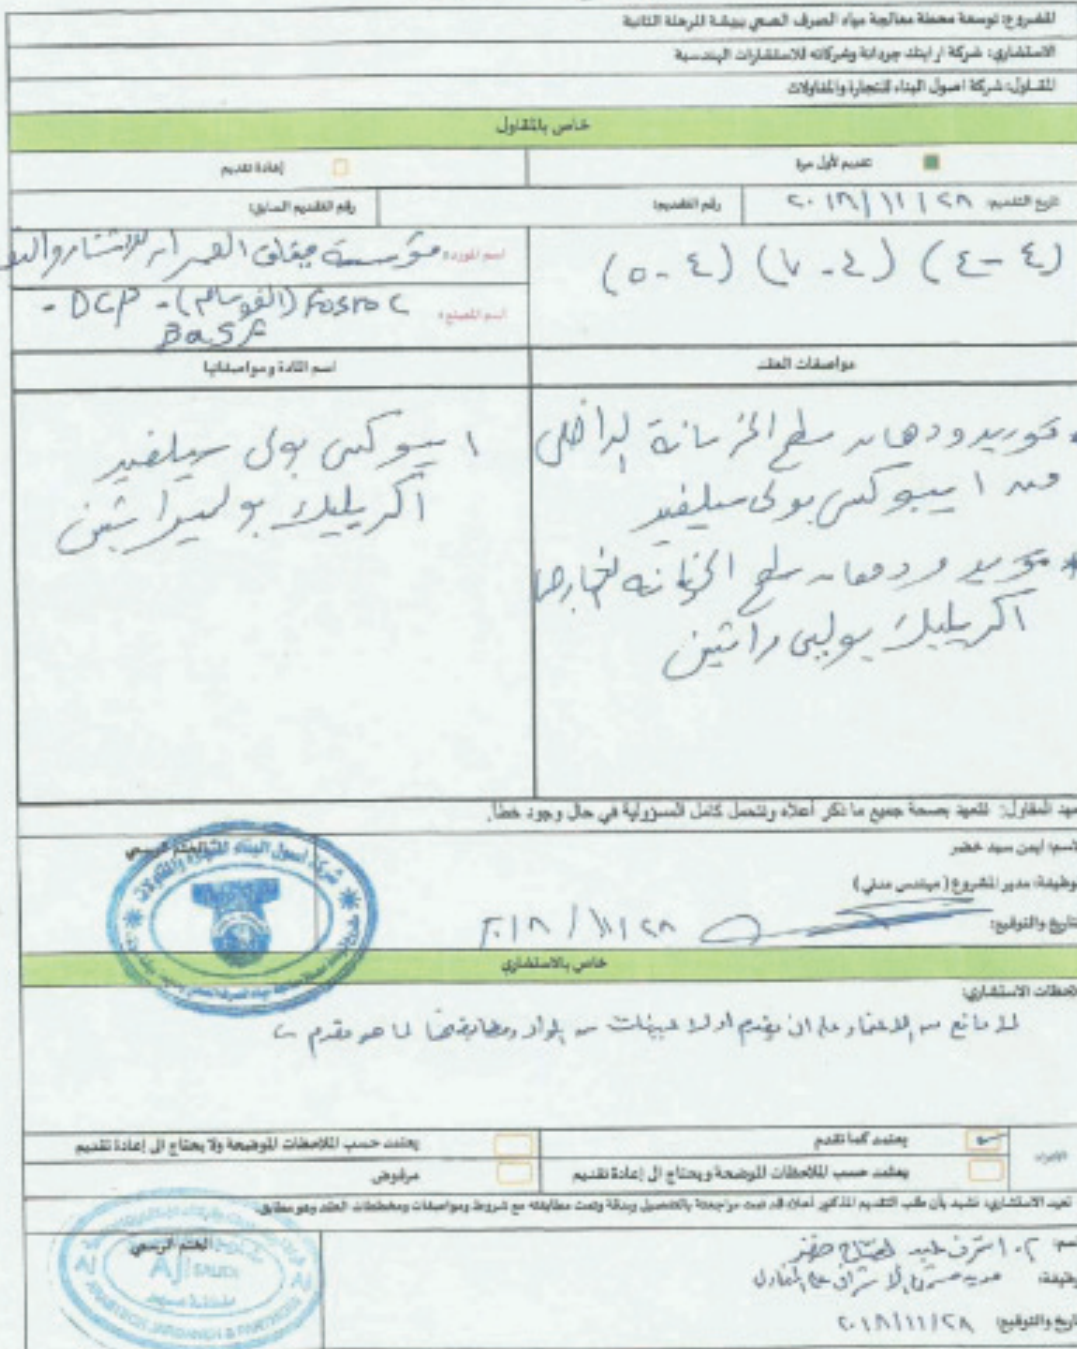 المشروع: توسعة محطة معالجة مياه الصرف الصحي ببيشة المرحلة الثانية
الاستشاري: شركة ارابتك جردانة وشركاه للاستشارات الهندسية
المقاول: شركة اصول البناء للتجارة والمقاولات
خاص بالمقاول
تقديم لأول مرة
إعادة تقديم
تاريخ التقديم: ٢٠١٨/١١/٢٨
رقم التقديم:
رقم التقديم السابق:
(٤-٤) (٤-٧) (٤-٥)
اسم المورد: مؤسسة
اسم المصنع: Fosroc - DCP -
BASF
مواصفات العقد
اسم المادة ومواصفاتها
* توريد ودهان سطح الخرسانة الداخلي
من ايبوكس بولى سيلفيد
* توريد ودهان سطح الخرسانة الخارجي
اكريليك
ايبوكس بولى سيلفيد
اكريليك
تعهد المقاول: نتعهد بصحة جميع ما ذكر أعلاه ونتحمل كامل المسؤولية في حال وجود خطأ.
الاسم: ايمن سيد خضر
الوظيفة: مدير المشروع (مهندس مدني)
التاريخ والتوقيع: ٢٠١٨/١١/٢٨
الختم الرسمي
شركة أصول البناء للتجارة والمقاولات
خاص بالاستشاري
ملاحظات الاستشاري:
لا مانع من الاعتماد على ان يقدم اولا عينات من المواد ومطابقتها لما هو مقدم
الاجراء
يعتمد كما تقدم
يعتمد حسب الملاحظات الموضحة ولا يحتاج الى إعادة تقديم
يعتمد حسب الملاحظات الموضحة ويحتاج الى إعادة تقديم
مرفوض
تعهد الاستشاري: نشهد بأن طلب التقديم المذكور أعلاه قد تمت مراجعته بالتفصيل وبدقة وتمت مطابقته مع شروط ومواصفات ومخططات العقد وهو مطابق.
الاسم: م. اشرف عبد الفتاح
الوظيفة:
التاريخ والتوقيع: ٢٠١٨/١١/٢٨
الختم الرسمي
AJ SAUDI
ARABTECH JARDANEH & PARTNERS